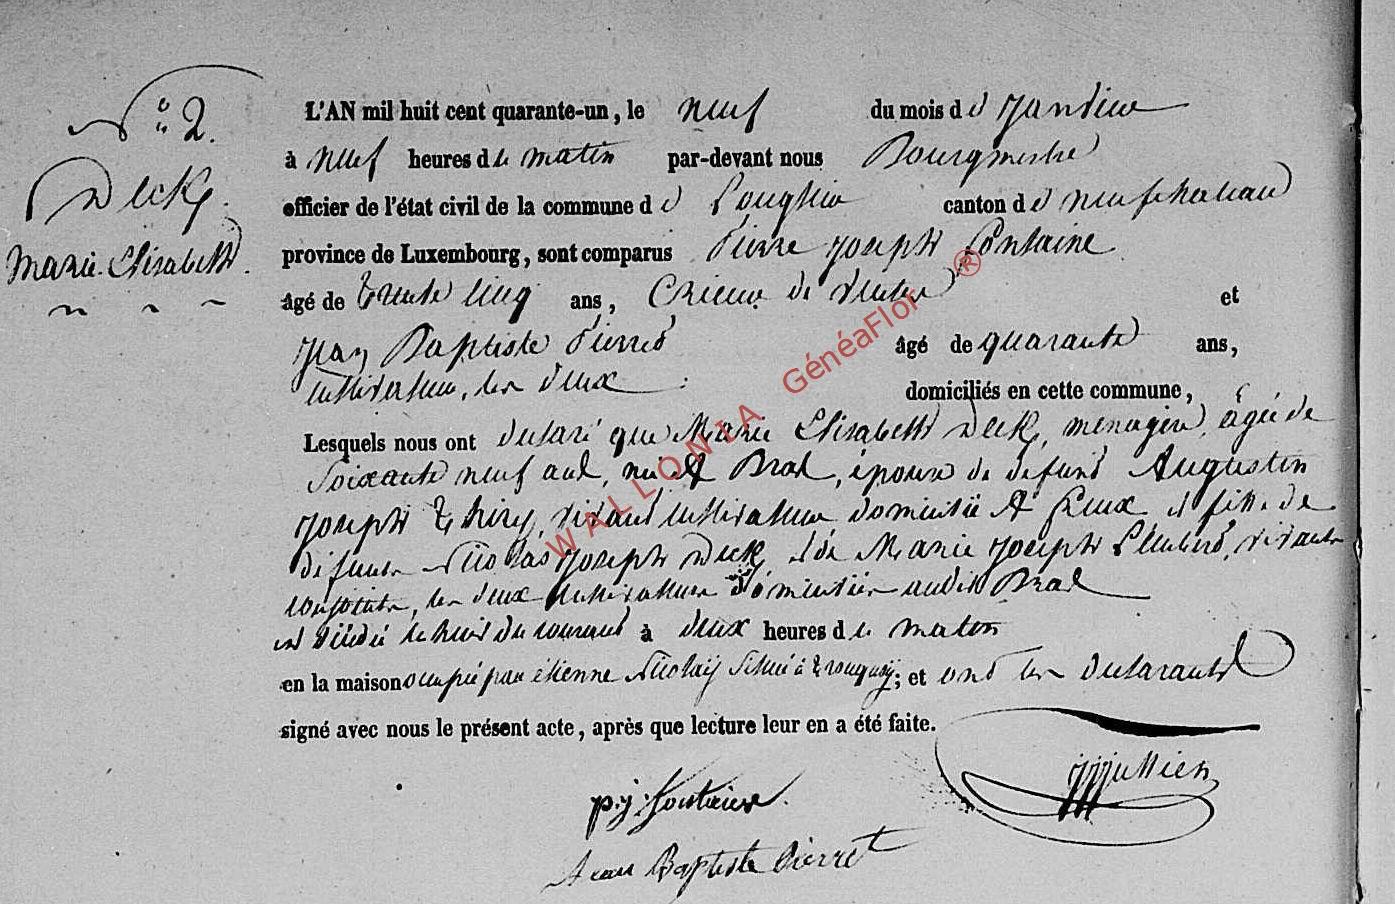 N° 2.
Deck
Marie Elisabeth
L'AN mil huit cent quarante-un, le neuf du mois de Janvier
à neuf heures du matin par-devant nous Bourgmestre
officier de l'état civil de la commune de Longlier canton de neufchateau
province de Luxembourg, sont comparus Pierre Joseph Fontaine
âgé de trente cinq ans, Crieur de ventes et
Jean Baptiste Pierret âgé de quarante ans,
cultivateur, les deux domiciliés en cette commune,
Lesquels nous ont declaré que Marie Elisabeth Deck, menagère, âgée de
Soixante neuf ans, née à Bras, épouse de defunt Augustin
Joseph Thiry, vivant cultivateur domicilié à et fille de
defunts Nicolas Joseph Deck, et de Marie Joseph vivants
conjoints, les deux cultivateurs domiciliés audit Bras
est décédée le huit du courant à deux heures du matin
en la maison occupée par étienne Nicolaÿ située à tronquoy; et ont les declarants
signé avec nous le présent acte, après que lecture leur en a été faite.
p.j. fontaine
Jean Baptiste Pierret
WALLONIA GénéaFlor ®